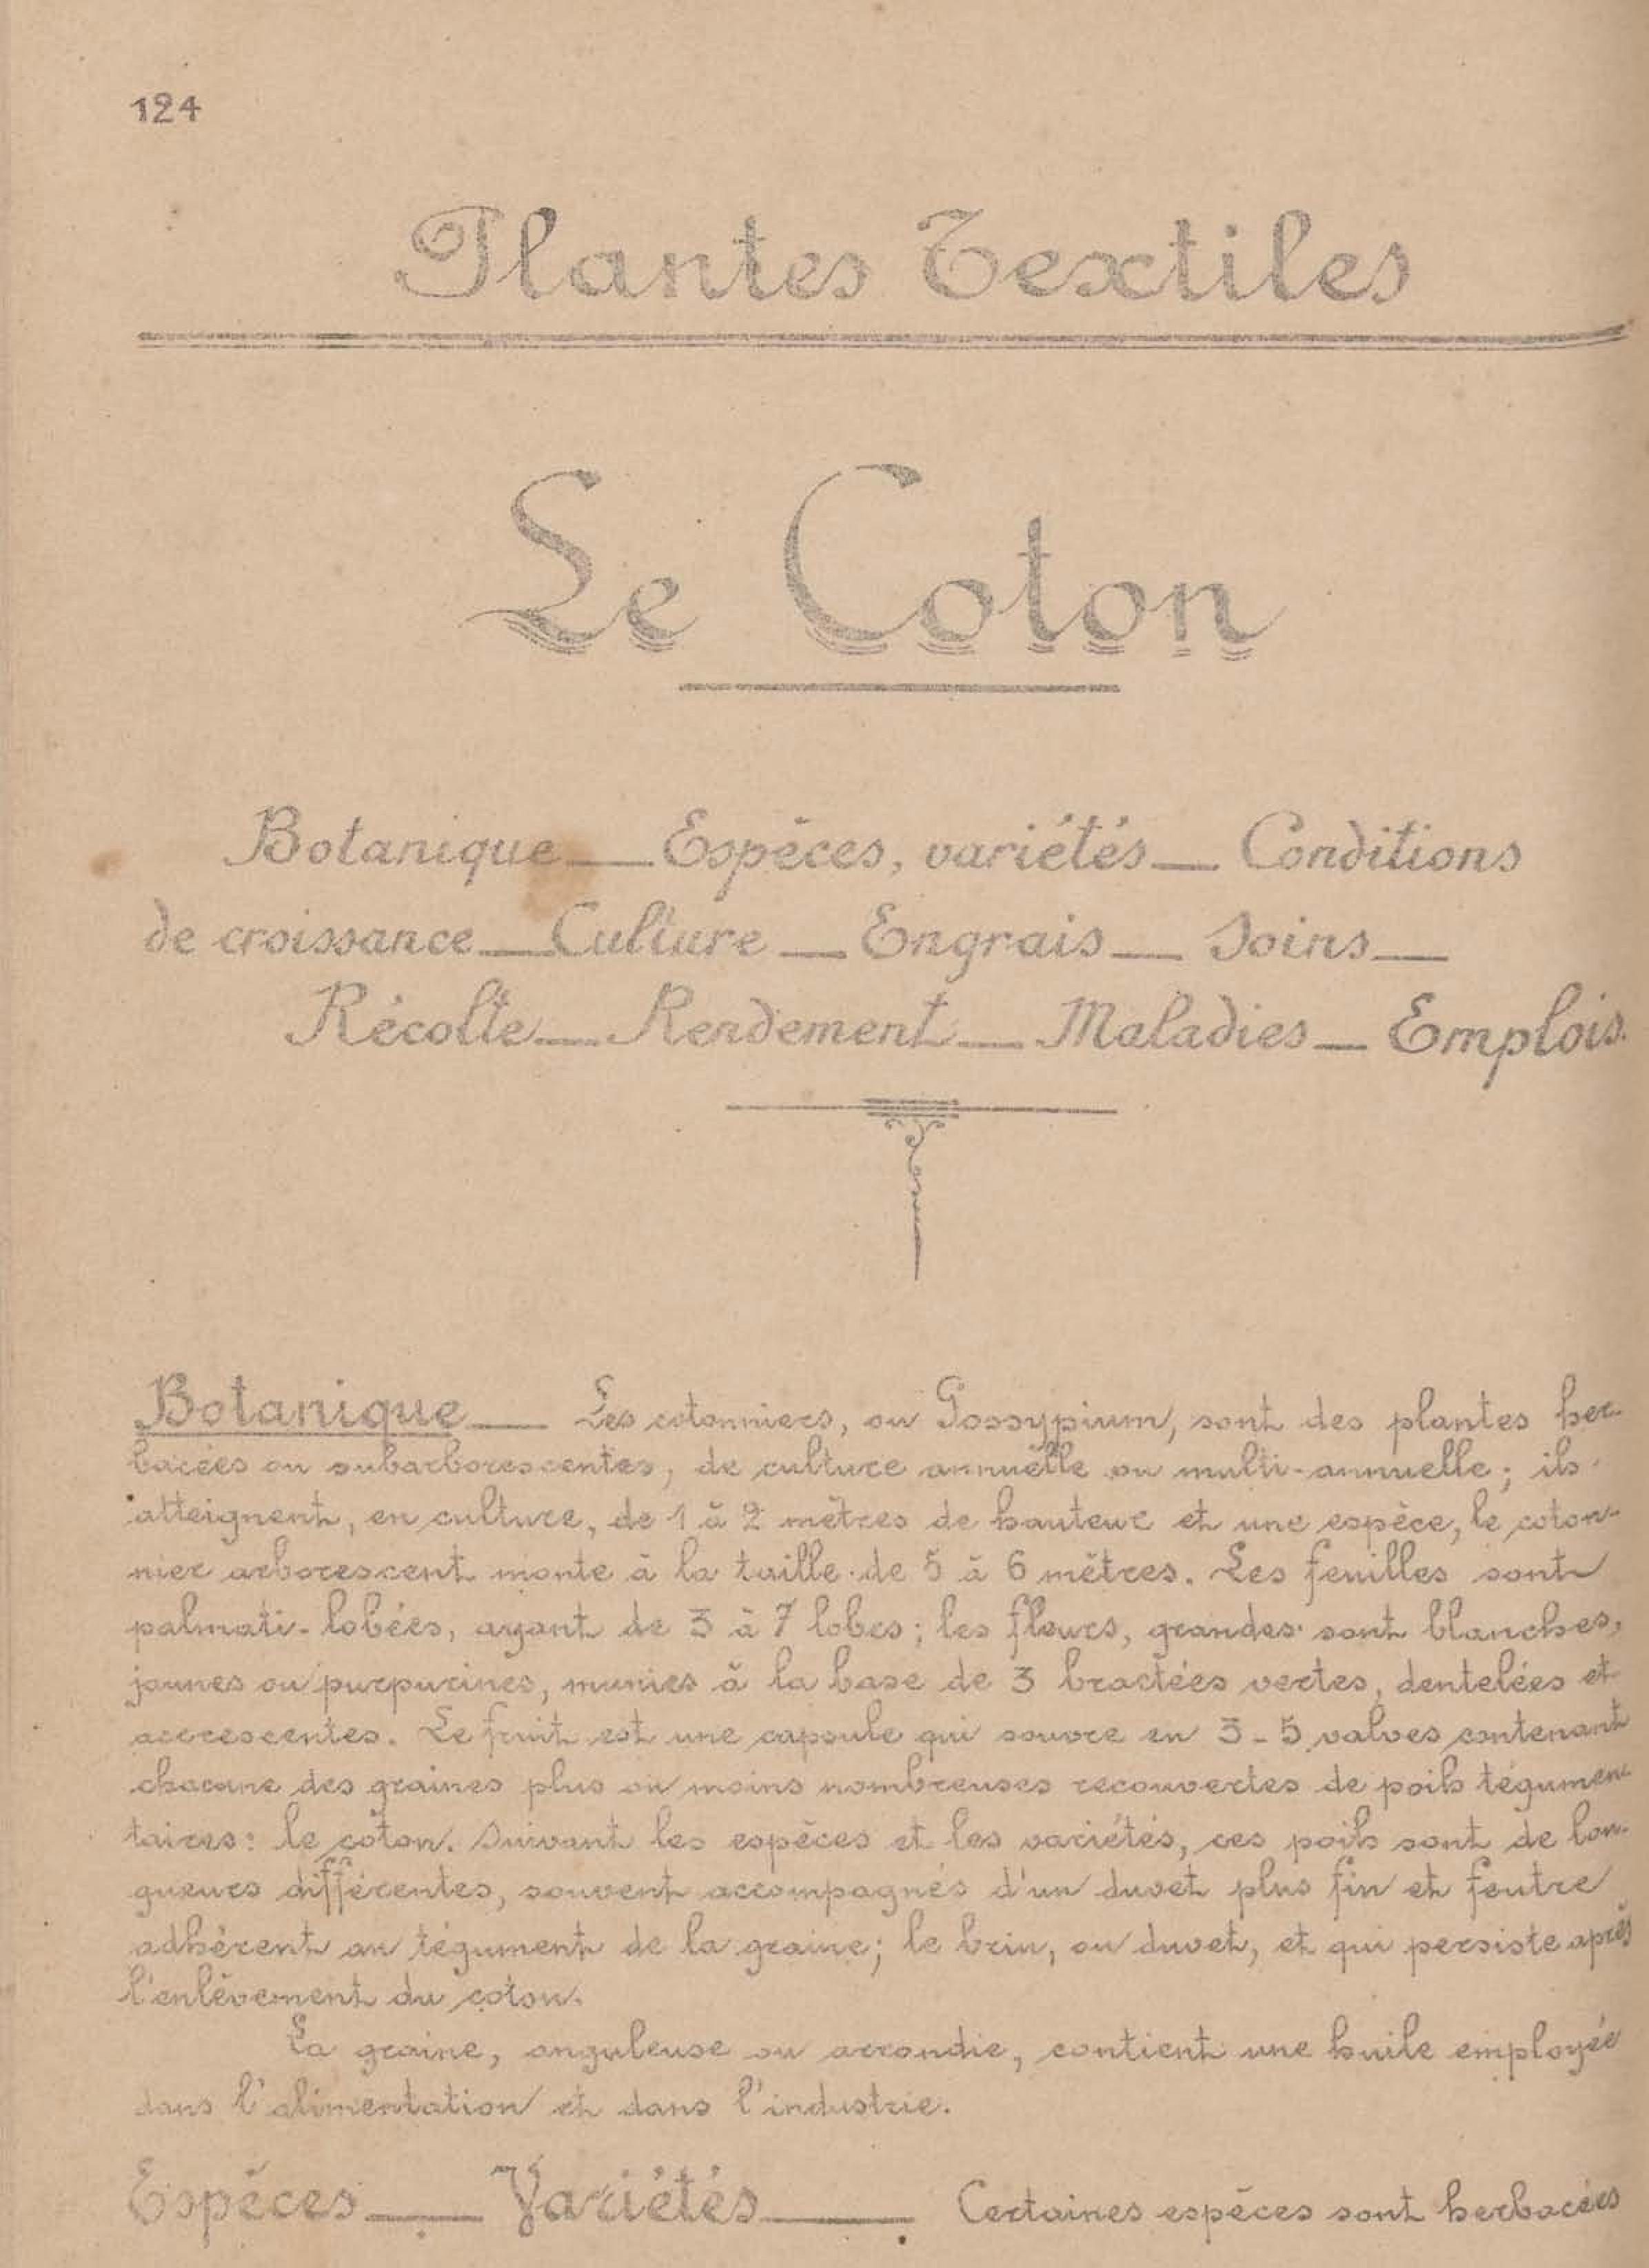 124
Plantes Textiles
Le Coton
Botanique — Espèces, variétés — Conditions
de croissance — Culture — Engrais — Soins —
Récolte — Rendement — Maladies — Emplois.
Botanique — Les cotonniers, ou Gossypium, sont des plantes her-
bacées ou subarborescentes, de culture annuelle ou multi-annuelle; ils
atteignent, en culture, de 1 à 2 mètres de hauteur et une espèce, le coton-
nier arborescent monte à la taille de 5 à 6 mètres. Les feuilles sont
palmati-lobées, ayant de 3 à 7 lobes; les fleurs, grandes sont blanches,
jaunes ou purpurines, munies à la base de 3 bractées vertes, dentelées et
accrescentes. Le fruit est une capsule qui souvre en 3-5 valves contenant
chacune des graines plus ou moins nombreuses recouvertes de poils tégumen-
taires: le coton. Suivant les espèces et les variétés, ces poils sont de lon-
gueurs différentes, souvent accompagnés d'un duvet plus fin et feutre
adhérent au tégument de la graine; le brin, ou duvet, et qui persiste après
l'enlèvement du coton.
La graine, anguleuse ou arrondie, contient une huile employée
dans l'alimentation et dans l'industrie.
Espèces — Variétés — Certaines espèces sont herbacées